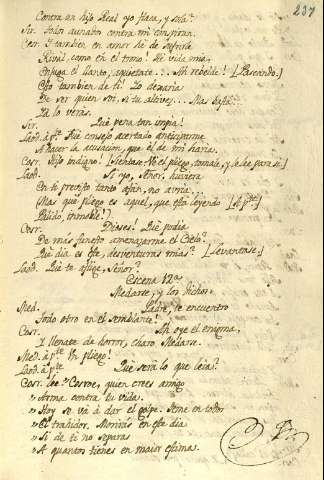 237
Contra un hijo Real yo flaca, y sola?
Sir. Todos aunados contra mi conspiran.
Cosr. Y tambien en amor he de sufrirla
Rival, como en el trono! Mi vida mia,
Enjuga el llanto, aquietate... Ah rebelde! [Paseando.]
Esto tambien de ti! Lo dexaria
De ser quien soi, si tu altivez... Mas basta.
Ya lo verás.
Sir. Qué pena tan impia!
Laod. à pte. Fué consejo acertado anticiparme
A hacer la acusacion, que el de mi haria.
Cosr. Hijo indigno! [Sientase. Ve el pliego, tomale, y le lee para si.]
Laod. Si yo, Señor, huviera
En ti previsto tanto afán, no avria...
(Mas qué pliego es aquel, que está leyendo [A pte.]
Palido, inmoble?)
Cosr. Dioses! Qué pudia
De más funesto amenazarme el Cielo?
Qué dia es este, desventuras mias? [Levantase.]
Laod. Qué te aflige, Señor?
Escena 12ª
Medarse, y los dichos.
Med. Padre, te encuentro
Todo otro en el semblante!
Cosr. Ah oye el enigma,
Y llenate de horror, charo Medarse.
Med. à pte. Un pliego!
Laod. à pte. Qué será lo que leia?
Cosr. lee. "Cosroe, quien crees amigo
" Arma contra tu vida.
" Hoy se va à dar el golpe. Teme en todos
" El traidor. Morirás en este dia
" Si de ti no separas
" A quantos tienes en maior estima.